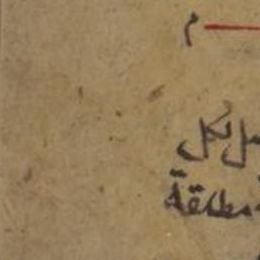 م
لكل
مطلقة